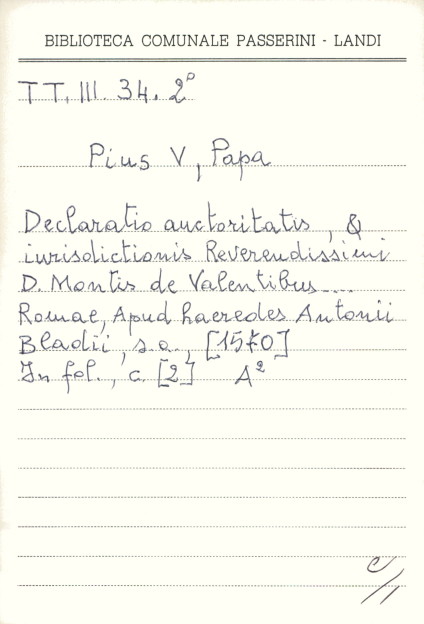 BIBLIOTECA COMUNALE PASSERINI - LANDI
TT. III. 34. 2°
Pius V, Papa
Declaratio auctoritatis, &
iurisdictionis Reverendissimi
D. Montis de Valentibus....
Romae, Apud haeredes Antonii
Bladii, s.a., [1570]
In fol., c. [2] A²